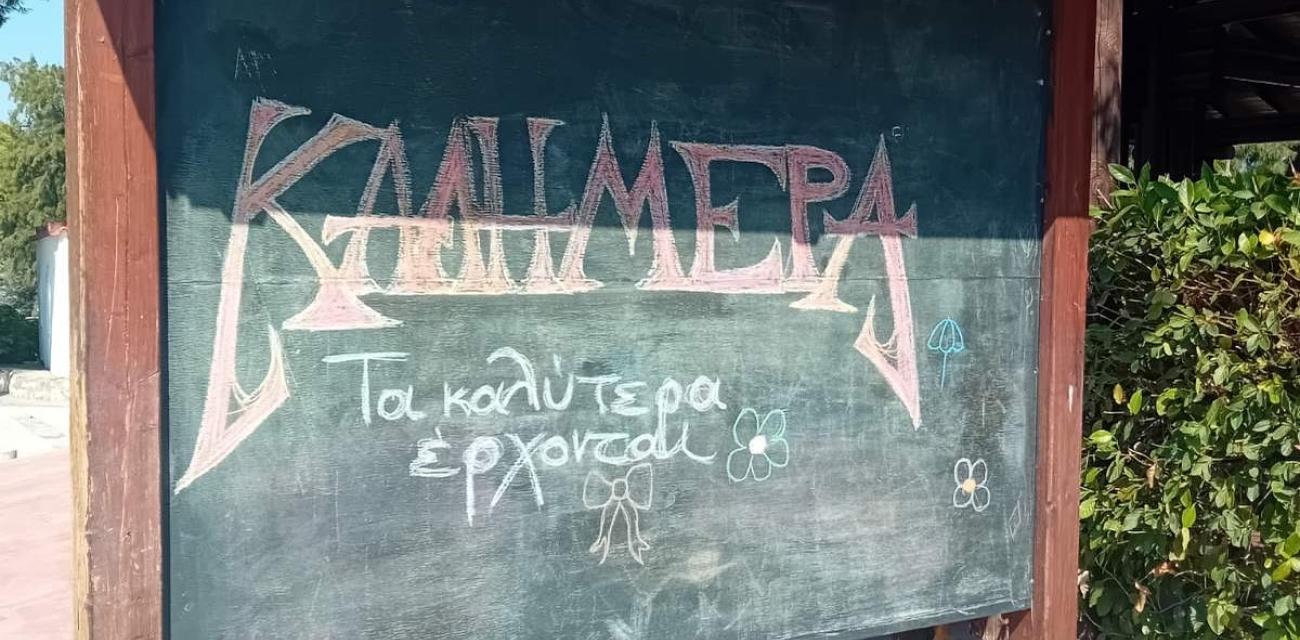 ΚΑΛΗΜΕΡΑ
Τα καλύτερα
έρχονται